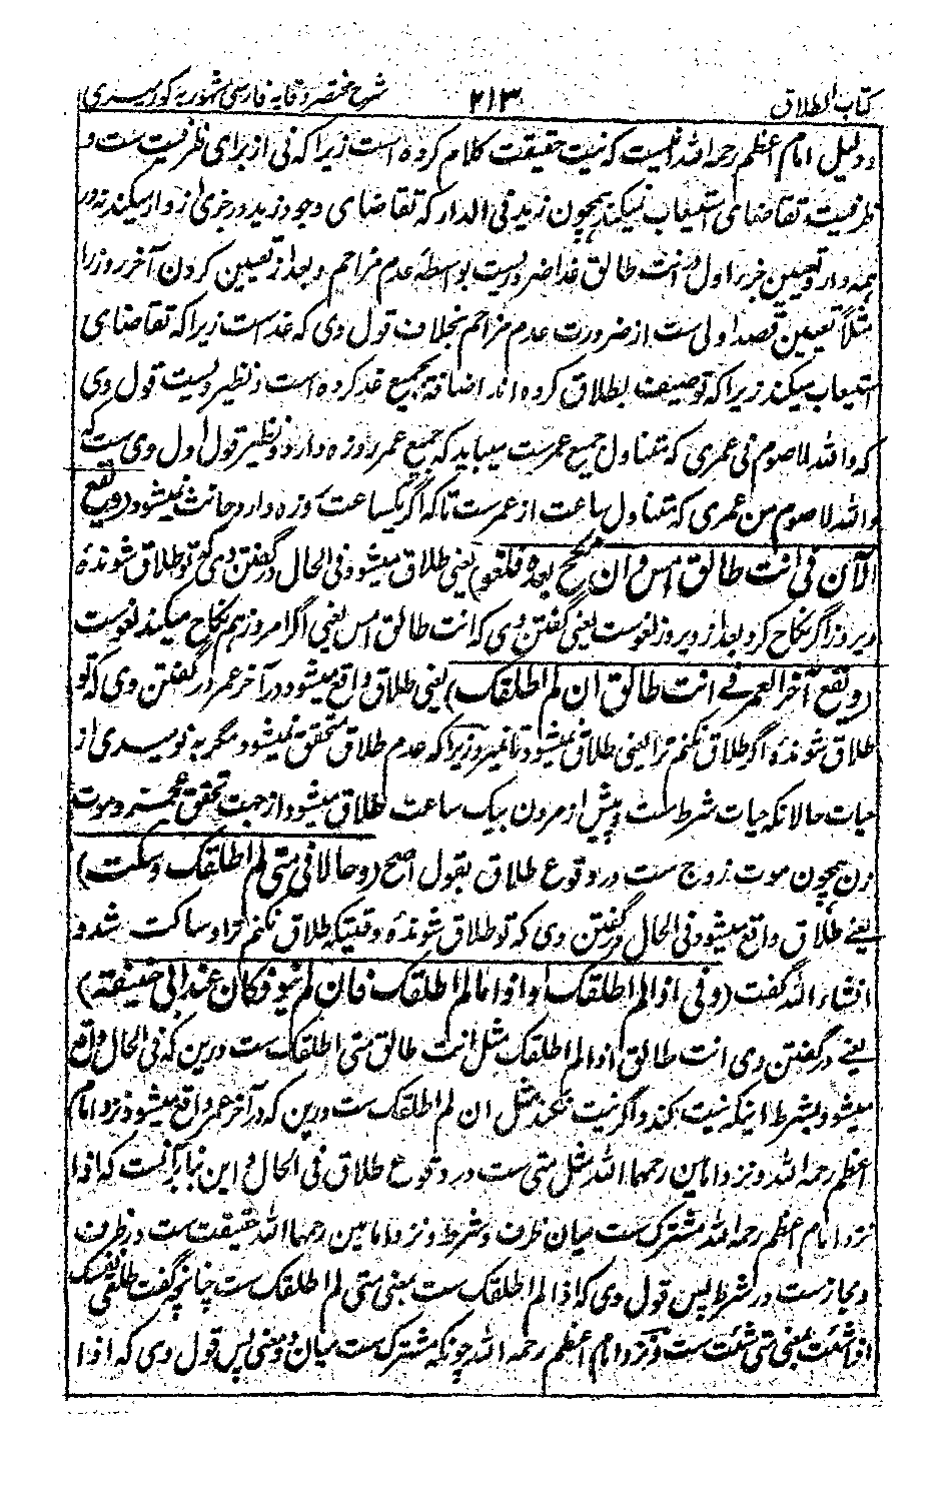 کتاب الطلاق ۲۱۳ شرح مختصر وقایه فارسی مشهور به کور میری
و دلیل امام اعظم رحمه الله اینست که نیت حقیقت کلام کرده است زیرا که فی از برای ظرفیت ست و
ظرفیت تقاضای استیعاب نمیکند همچون زید فی الدار که تقاضای وجود زید در جزئی از دار میکند نه در
همه دار و تعیین جزء اول در انت طالق غدا ضروریست بواسطهٔ عدم مزاحم و بعد از تعیین کردن آخر روز را
مثلاً تعیین قصدا ولی ست از ضرورت عدم مزاحم بخلاف قول وی که غد است زیرا که تقاضای
استیعاب میکند زیرا که توصیف بطلاق کرده اند اضافه بجمیع غد کرده است و نظیر ویست قول وی
که والله لاصوم فی عمری که متناول جمیع عمرست میباید که جمیع عمر روزه دارد و نظیر قول اول وی ست که
والله لاصوم من عمری که متناول ساعت از عمرست تا که اگر یکساعت روزه دارد حانث نمیشود (و یقع
الآن فی انت طالق امس وان نکح بعده فلغو) یعنی طلاق میشود فی الحال در گفتن وی که تو طلاق شوندهٔ
دیروز اگر نکاح کرد بعد از دیروز لغوست یعنی گفتن وی که انت طالق امس یعنی اگر امروز هم نکاح میکند لغوست
(و یقع آخر العمر فی انت طالق ان لم اطلقک) یعنی طلاق واقع میشود در آخر عمر در گفتن وی که تو
طلاق شوندهٔ اگر طلاق نکنم ترا یعنی طلاق نمیشود تا نمیرد زیرا که عدم طلاق متحقق نمیشود مگر به نومیدی از
حیات حالانکه حیات شرط ست و پیش از مردن بیک ساعت طلاق میشود از جهت تحقق عجز و موت
زن همچون موت زوج ست در وقوع طلاق بقول اصح (و حالا فی متی لم اطلقک و سکت)
یعنی طلاق واقع میشود فی الحال در گفتن وی که تو طلاق شوندهٔ وقتیکه طلاق نکنم ترا و ساکت شد و
انشاء الله گفت (و فی اذا لم اطلقک او اذا ما لم اطلقک فان لم ینو فکان عند ابی حنیفة)
یعنی در گفتن وی انت طالق اذا لم اطلقک مثل انت طالق متی اطلقک ست درین که فی الحال واقع
میشود بشرط اینکه نیت کند و اگر نیت نکند مثل ان لم اطلقک ست درین که در آخر عمر واقع میشود نزد امام
اعظم رحمه الله و نزد امامین رحمهما الله مثل متی ست در وقوع طلاق فی الحال و این بنا بر آنست که اذا
نزد امام اعظم رحمه الله مشترک ست میان ظرف و شرط و نزد امامین رحمهما الله حقیقت ست در ظرف
و مجاز ست در شرط پس قول وی که اذا لم اطلقک ست بمعنی متی لم اطلقک ست چنانچه گفت طلقی نفسک
اذا شئت بمعنی متی شئت ست و نزد امام اعظم رحمه الله چونکه مشترک ست میان دو معنی پس قول وی که اذا